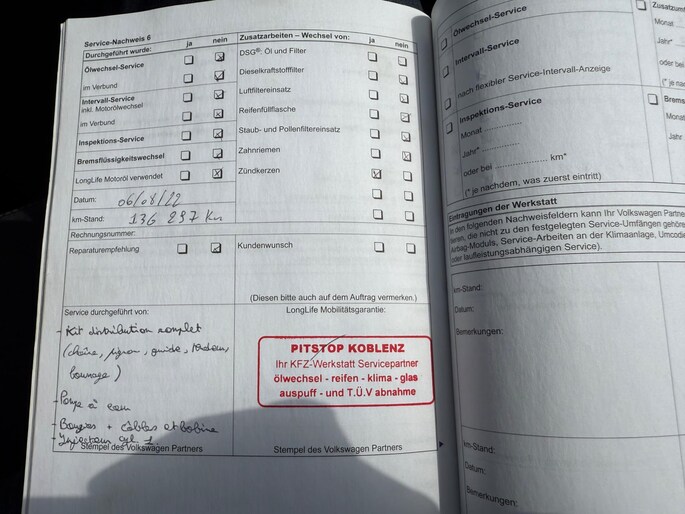 Service-Nachweis 6
ja nein
Durchgeführt wurde:
Ölwechsel-Service
im Verbund
Intervall-Service
inkl. Motorölwechsel
im Verbund
Inspektions-Service
Bremsflüssigkeitswechsel
LongLife Motoröl verwendet
Datum: 06/08/22
km-Stand: 136 297 Km
Rechnungsnummer:
Reparaturempfehlung
Service durchgeführt von:
- Kit distribution complet
(chaîne, pignon, guide, tendeur,
)
- Pompe à eau
- Bougies + câbles et bobine
- Injecteur cyl. 1.
Stempel des Volkswagen Partners
Zusatzarbeiten – Wechsel von:
ja nein
DSG®: Öl und Filter
Dieselkraftstofffilter
Luftfiltereinsatz
Reifenfüllflasche
Staub- und Pollenfiltereinsatz
Zahnriemen
Zündkerzen
Kundenwunsch
(Diesen bitte auch auf dem Auftrag vermerken.)
LongLife Mobilitätsgarantie:
PITSTOP KOBLENZ
Ihr KFZ-Werkstatt Servicepartner
ölwechsel - reifen - klima - glas
auspuff - und T.Ü.V abnahme
Stempel des Volkswagen Partners
Ölwechsel-Service
Intervall-Service
nach flexibler Service-Intervall-Anzeige
Inspektions-Service
Monat
Jahr*
oder bei km*
(* je nachdem, was zuerst eintritt)
Monat
Jahr*
oder bei
(* je n
Brems
Monat
Jahr*
Eintragungen der Werkstatt
In den folgenden Nachweisfeldern kann Ihr Volkswagen Partner
die nicht zu den festgelegten Service-Umfängen gehöre
Airbag-Moduls, Service-Arbeiten an der Klimaanlage, Umcodie
oder laufleistungsabhängigen Service).
km-Stand:
Datum:
Bemerkungen:
km-Stand:
Datum:
Bemerkungen: